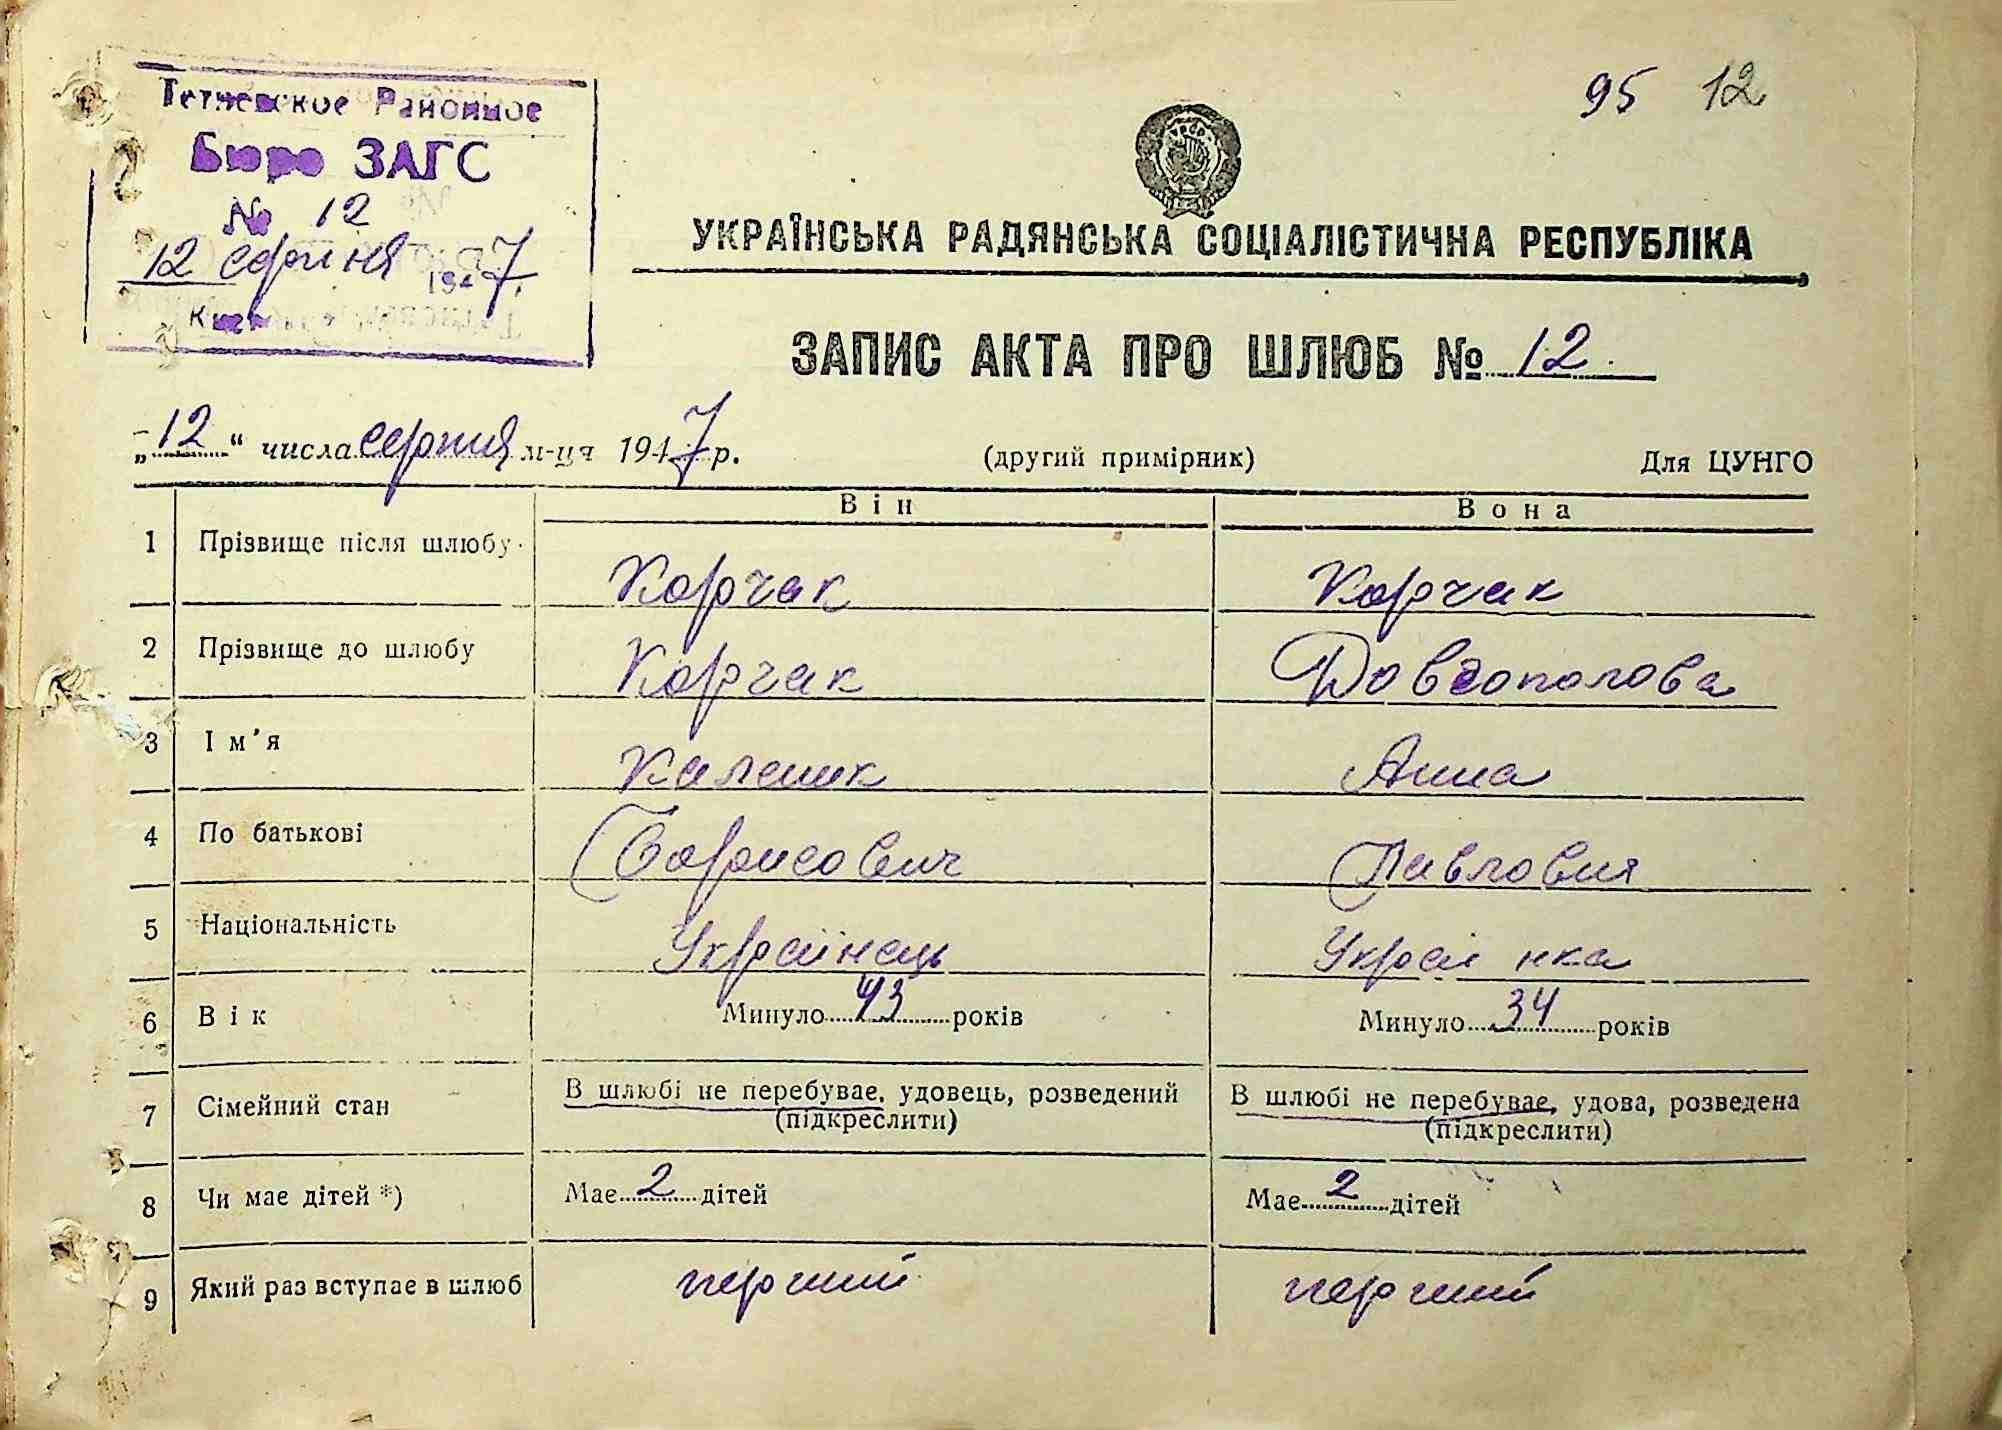 95 12
Тетиевское Районное
Бюро ЗАГС
№ 12
12 серпня 1947.
УКРАЇНСЬКА РАДЯНСЬКА СОЦІАЛІСТИЧНА РЕСПУБЛІКА
ЗАПИС АКТА ПРО ШЛЮБ № 12.
„12“ числа серпня м-ця 1947 р. (другий примірник) Для ЦУНГО
Він Вона
1 Прізвище після шлюбу Корчак Корчак
2 Прізвище до шлюбу Корчак Довгополова
3 Ім'я Калений Анна
4 По батькові Борисович Павловня
5 Національність Українець Украінка
6 Вік Минуло 43 років Минуло 34 років
7 Сімейний стан В шлюбі не перебуває, удовець, розведений (підкреслити) В шлюбі не перебуває, удова, розведена (підкреслити)
8 Чи має дітей *) Має 2 дітей Має 2 дітей
9 Який раз вступає в шлюб перший перший